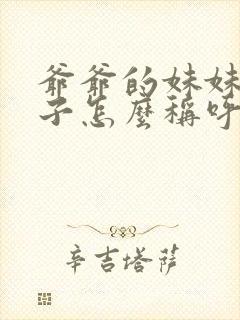 爺爺的妹妹
子怎麼稱呼
辛吉塔萨